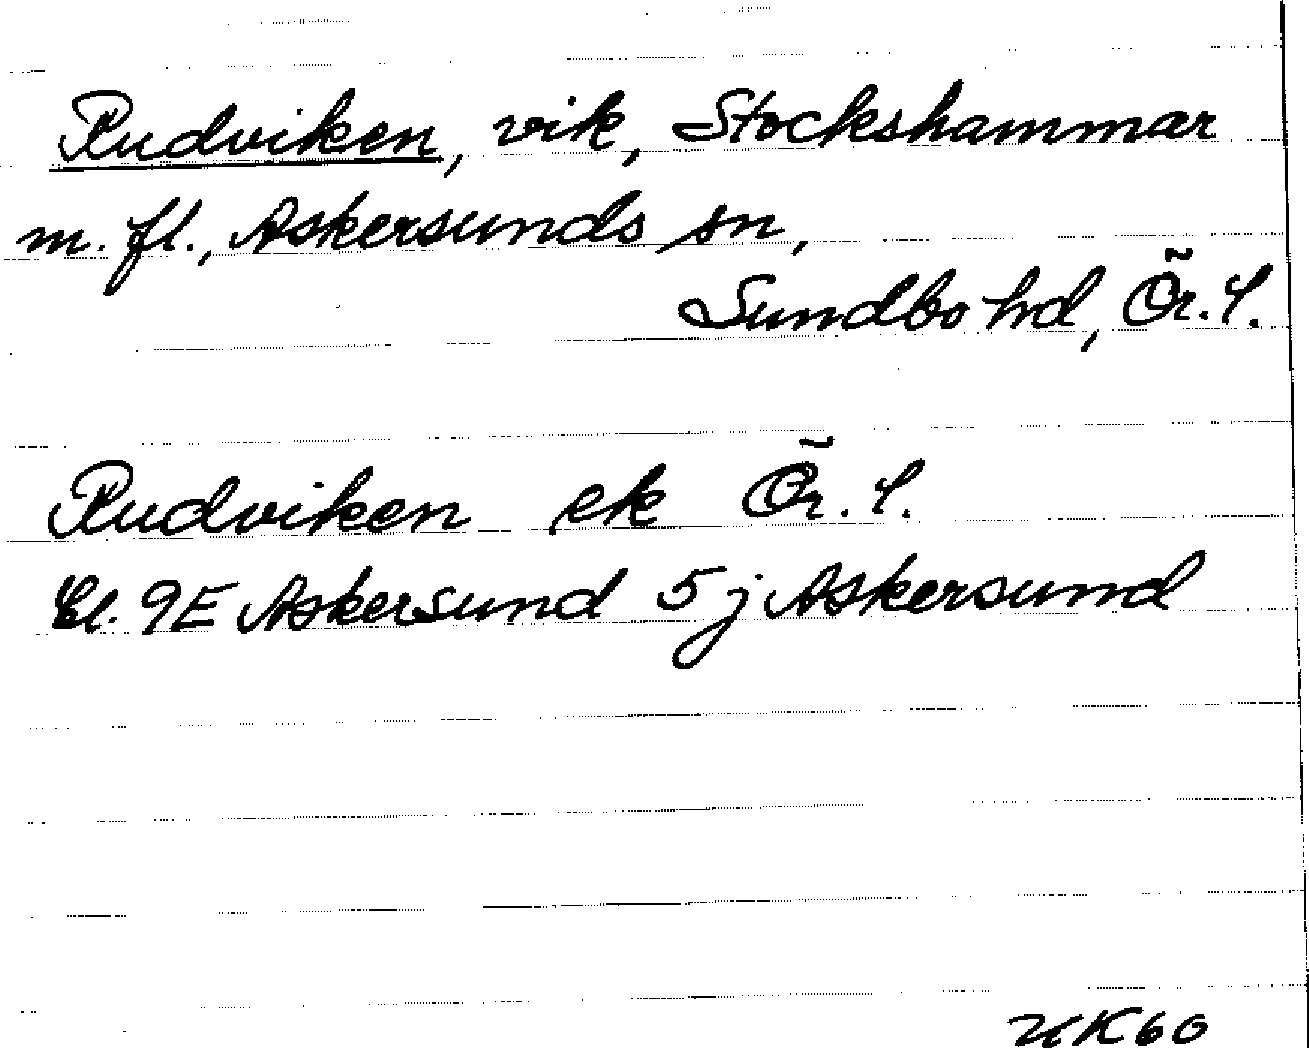 Rudviken, vik, Stockshammar
m. fl., Askersunds sn,
Sundbo hd, Ör. l.
Rudviken ek Ör. l.
Bl. 9E Askersund 5j Askersund
UK60